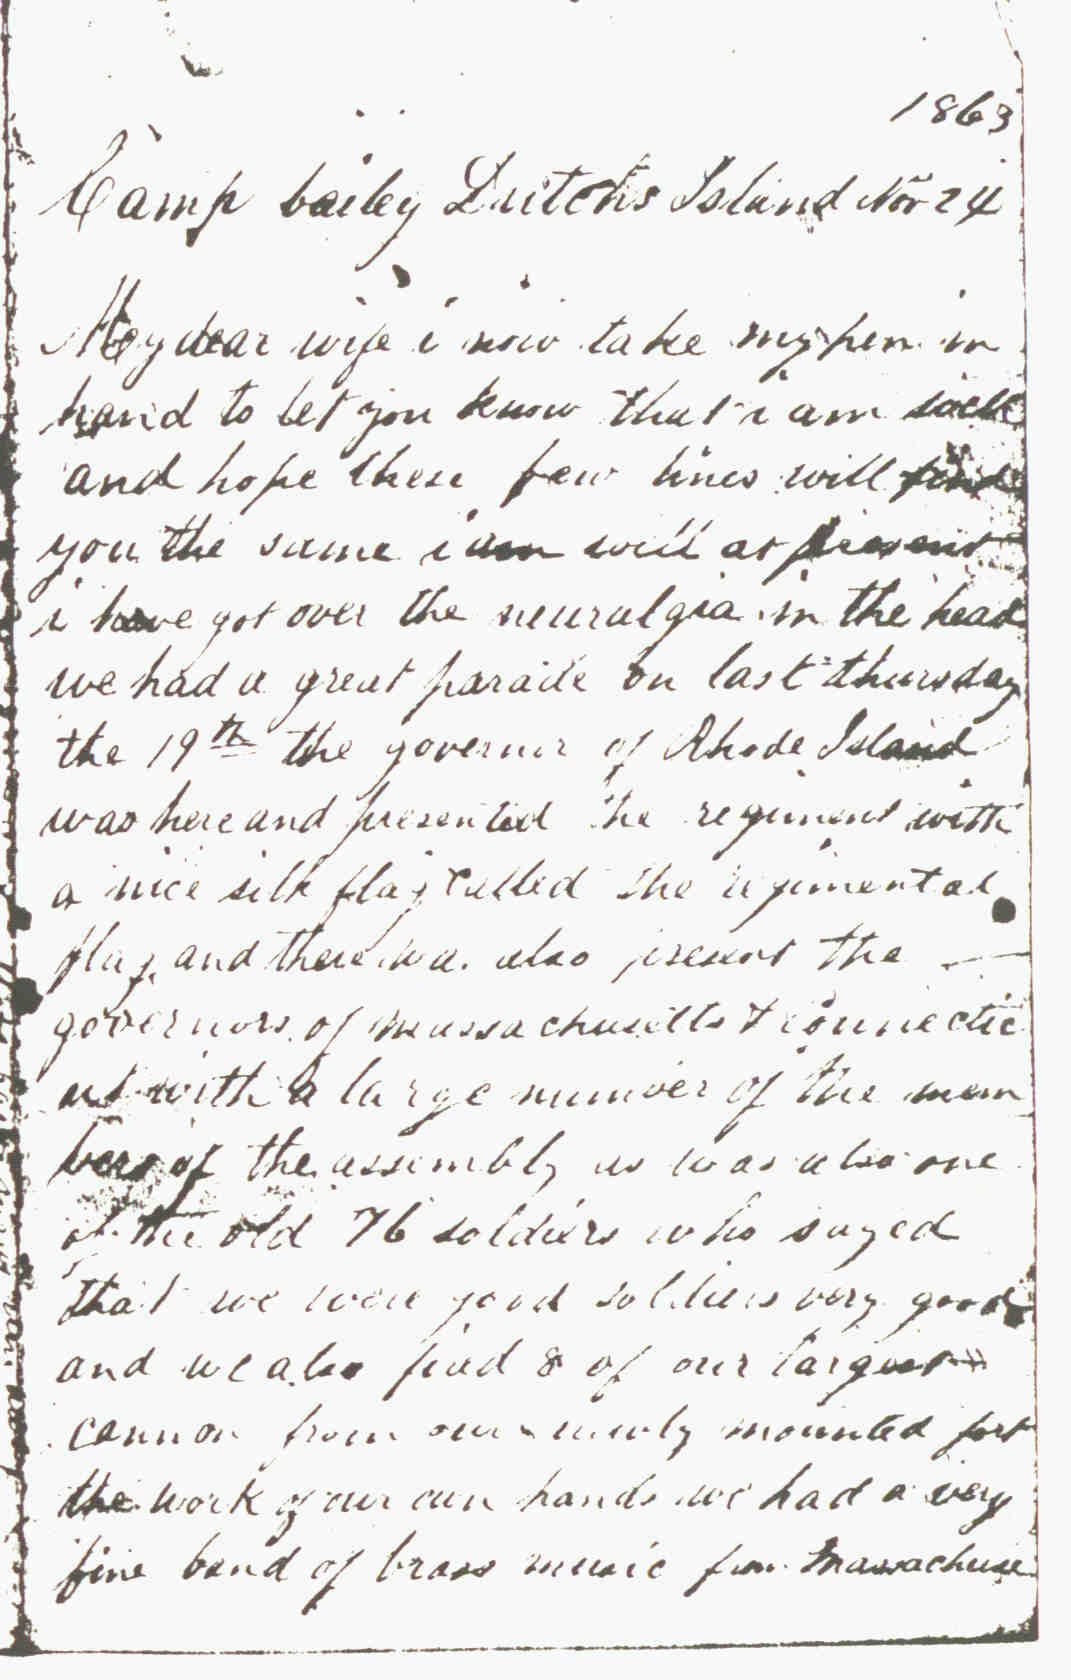 1863
Camp bailey Dutchs Island Nov 24
My dear wife i now take my pen in
hand to let you know that i am well
and hope these few lines will find
you the same i am well at present
i have got over the neuralgia in the head
we had a great parade on last thursday
the 19th the governor of Rhode Island
was here and presented the regiment with
a nice silk flag called the regimental
flag and there was also present the
governors of massachusetts & connectic
ut with a large number of the mem
bers of the assembly as was also one
of the old 76 soldiers who sayed
that we were good soldiers very good
and we also fired 8 of our largest
cannon from our newly mounted fort
the work of our own hands we had a very
fine band of brass music from Massachuse